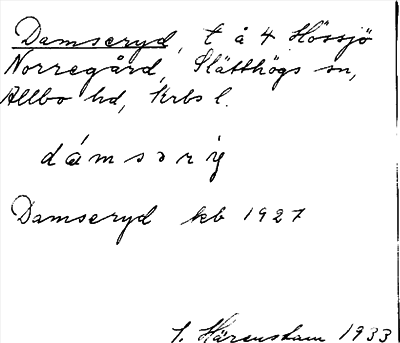 Damseryd, t å 4 Hössjö
Norregård, Slätthögs sn,
Allbo hd, Krbs l.
dámsərig
Damseryd kb 1927
J. Härenstam 1933